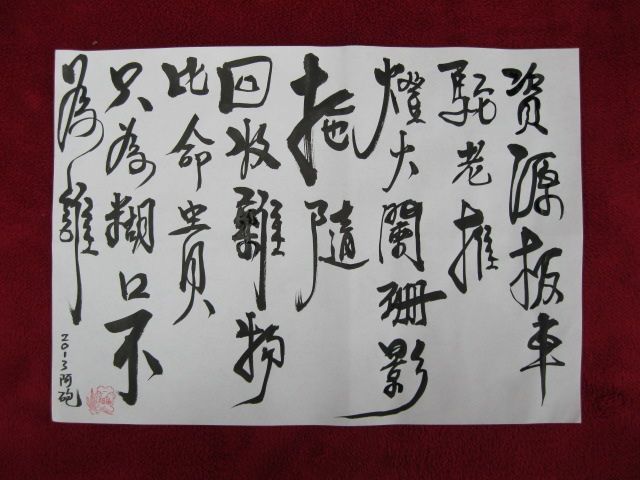 資源板車
駝老推
燈火闌珊影
拖隨
回收雜物
比命貴
只為糊口不
為誰
2013阿砲